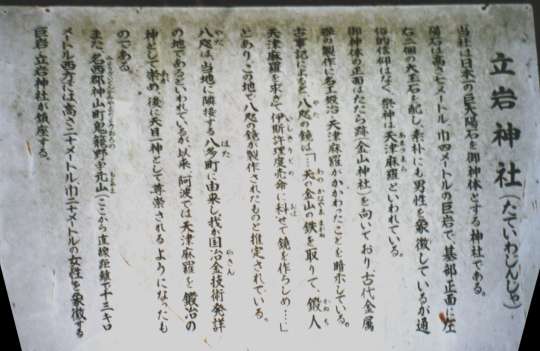 立岩神社(たていわじんじゃ)
当社は日本一の巨大陽石を御神体とする神社である。
陽石は高さ七メートル巾四メートルの巨岩で、基部正面に左
右二個の大玉石を配し、素朴にも男性を象徴しているが通
俗的信仰はなく、祭神は天津麻羅といわれている。
御神体の正面はたたら跡(金山神社)を向いており古代金属
器の製作に名工鍛冶、天津麻羅がかかわったことを暗示している。
古事記によると、八咫の鏡は「…天の金山の鉄を取りて、鍛人
天津麻羅を求ぎて伊斯許理度売命に科せて鏡を作らしめ…」
とあり、この地で八咫の鏡が製作されたものと推定されている。
八咫は当地に隣接する八多町に由来し我が国冶金技術発祥
の地であるといわれているが以来、阿波では天津麻羅を鍛冶の
神として崇め、後に天目一神として尊崇されるようになったも
のである。
また、名西郡神山町鬼籠野字元山(ここから直線距離で十三キロ
メートル西方)には高さ二十メートル巾二十メートルの女性を象徴する
巨岩、立岩神社が鎮座する。